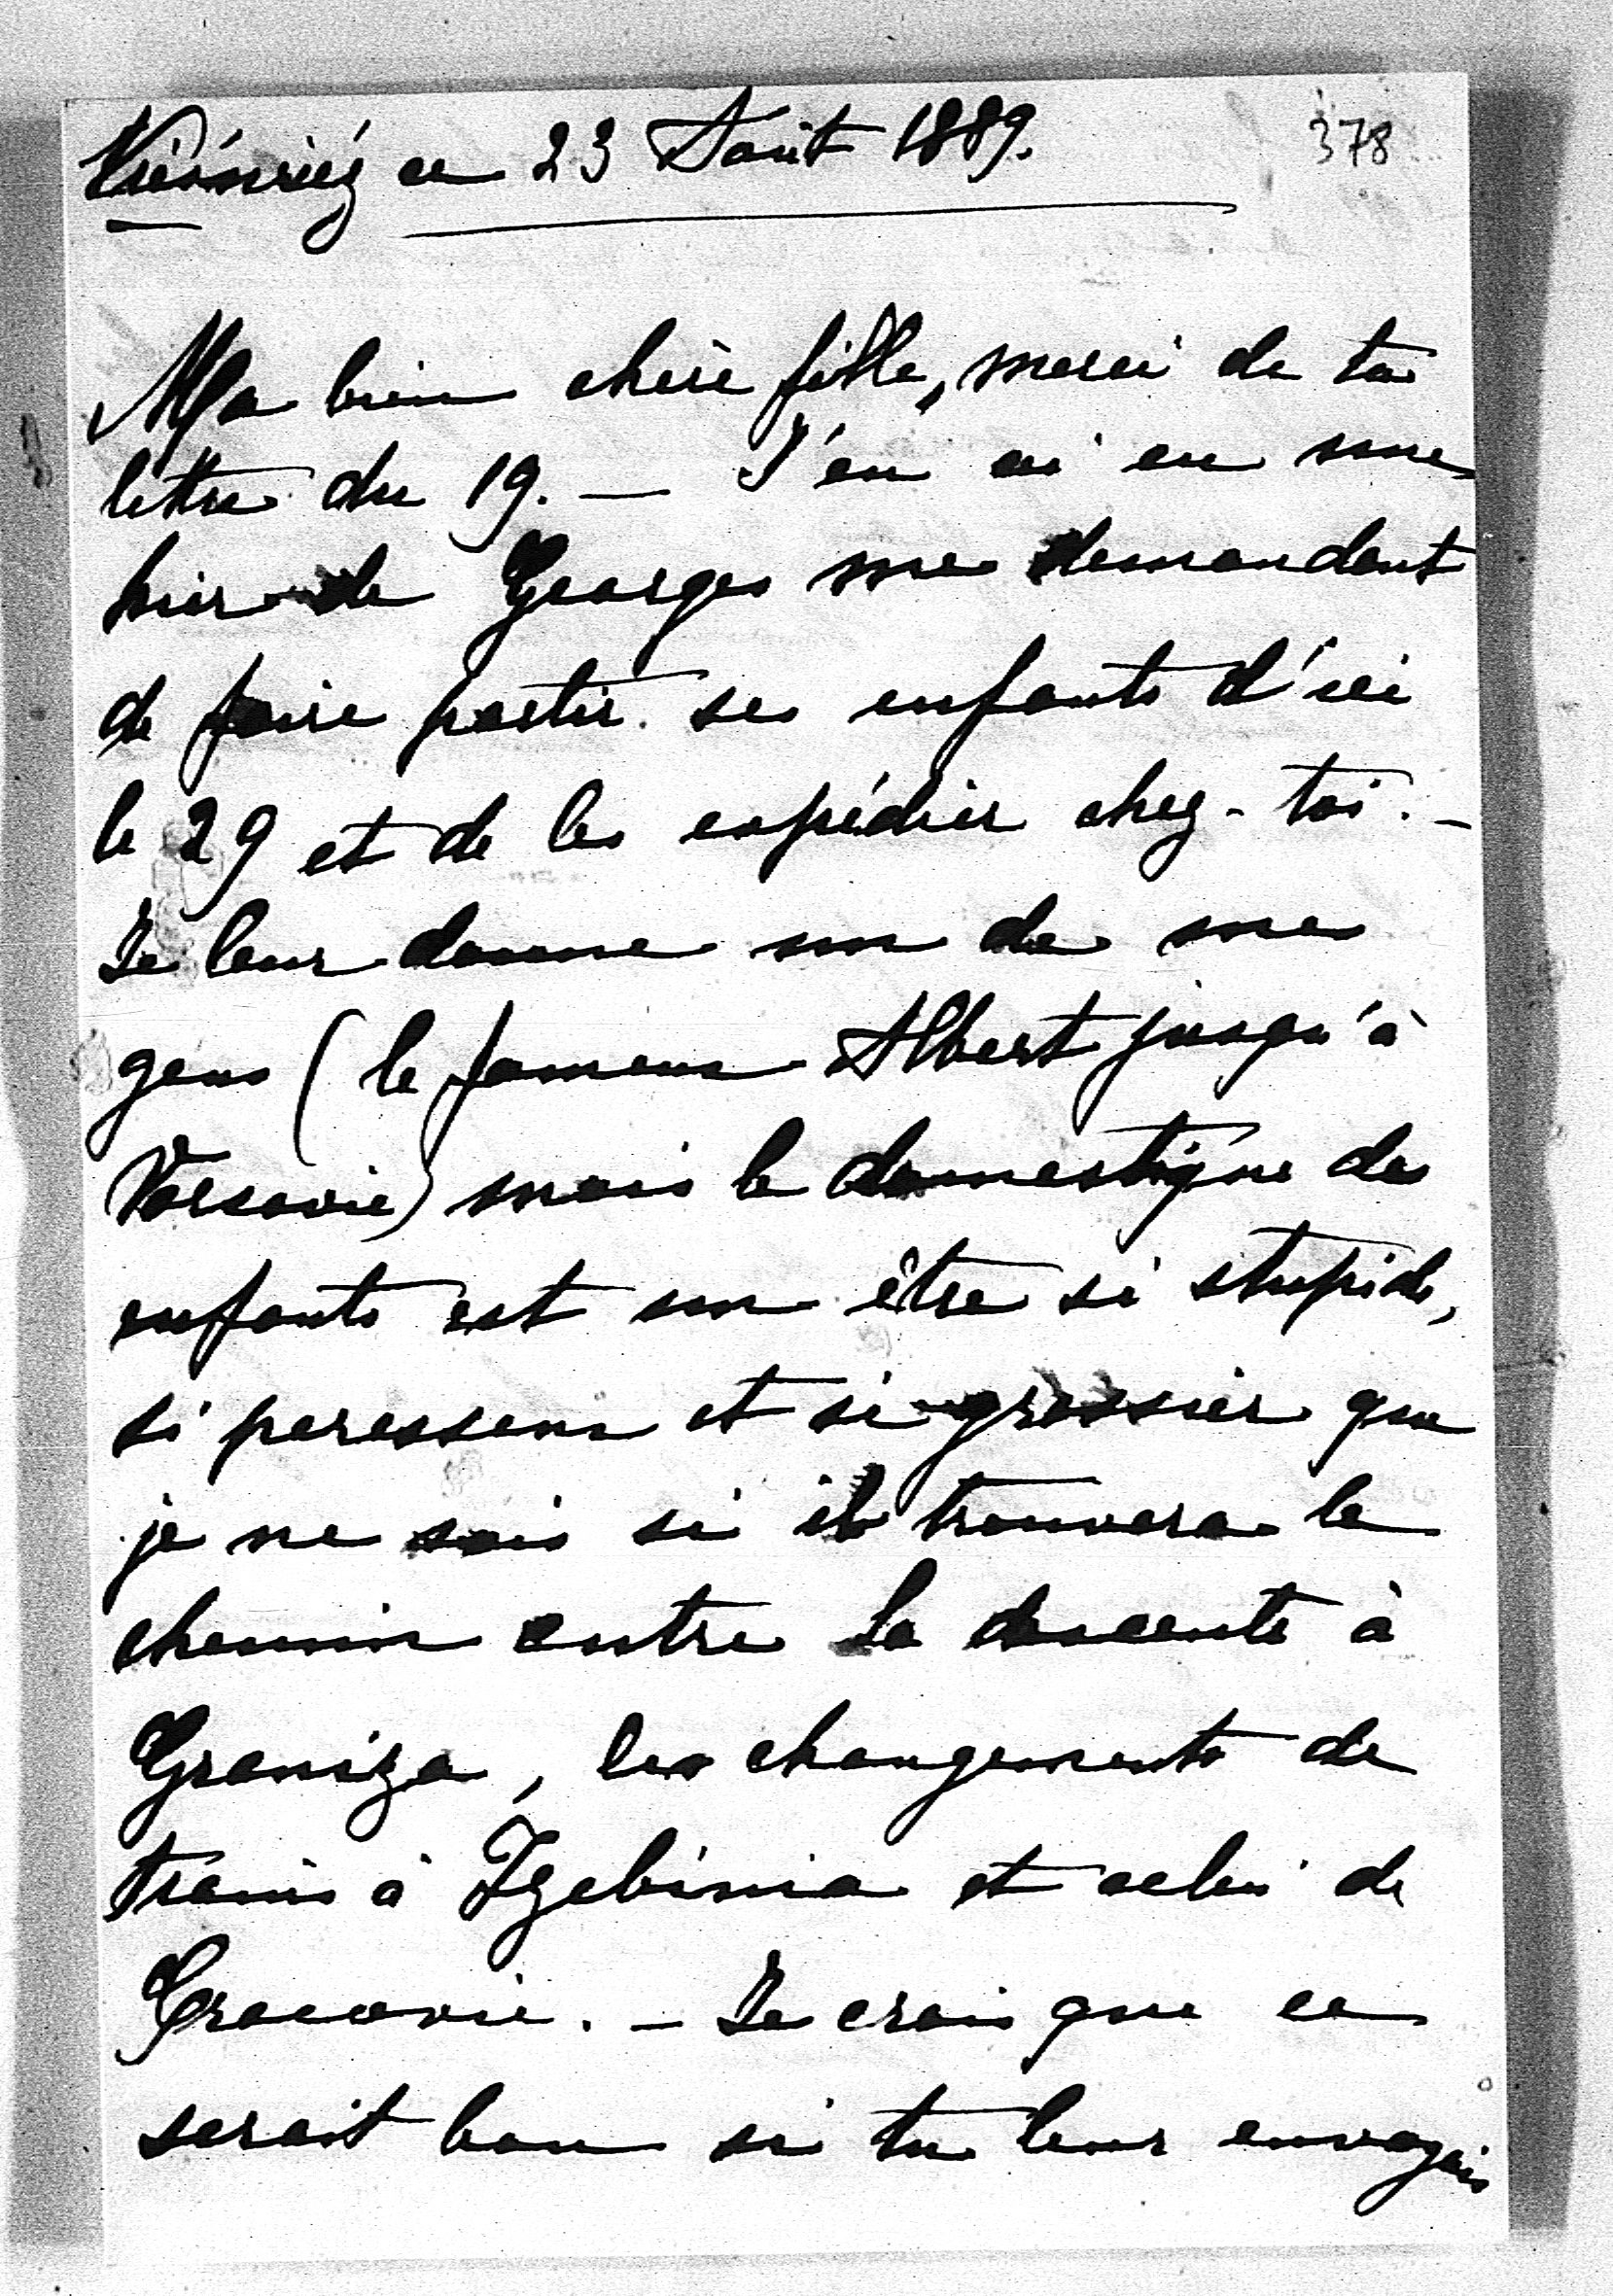 ce 23 Août 1889.
378
Ma bien chère fille, merci de ta
lettre du 19. — J'en ai eu une
hier de Georges me demandant
de faire partir ses enfants d'ici
le 29 et de les expédier chez-toi. —
Je leur donne un de mes
gens (le fameux Albert jusqu'à
Varsovie) mais le domestique des
enfants est un être si stupide,
si paresseux et si grossier que
je ne sais si il trouvera le
chemin entre la descente à
Graniza, les changements de
trains à Tzebinia et celui de
Cracovie. — Je crois que ce
serait bon si tu leur envoyais